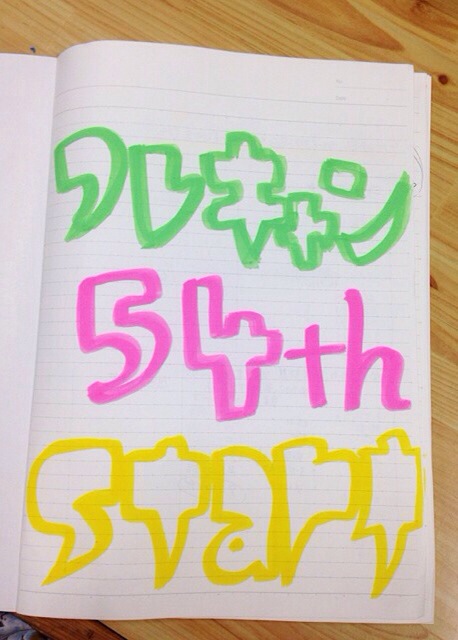 フレキャン
54th
start